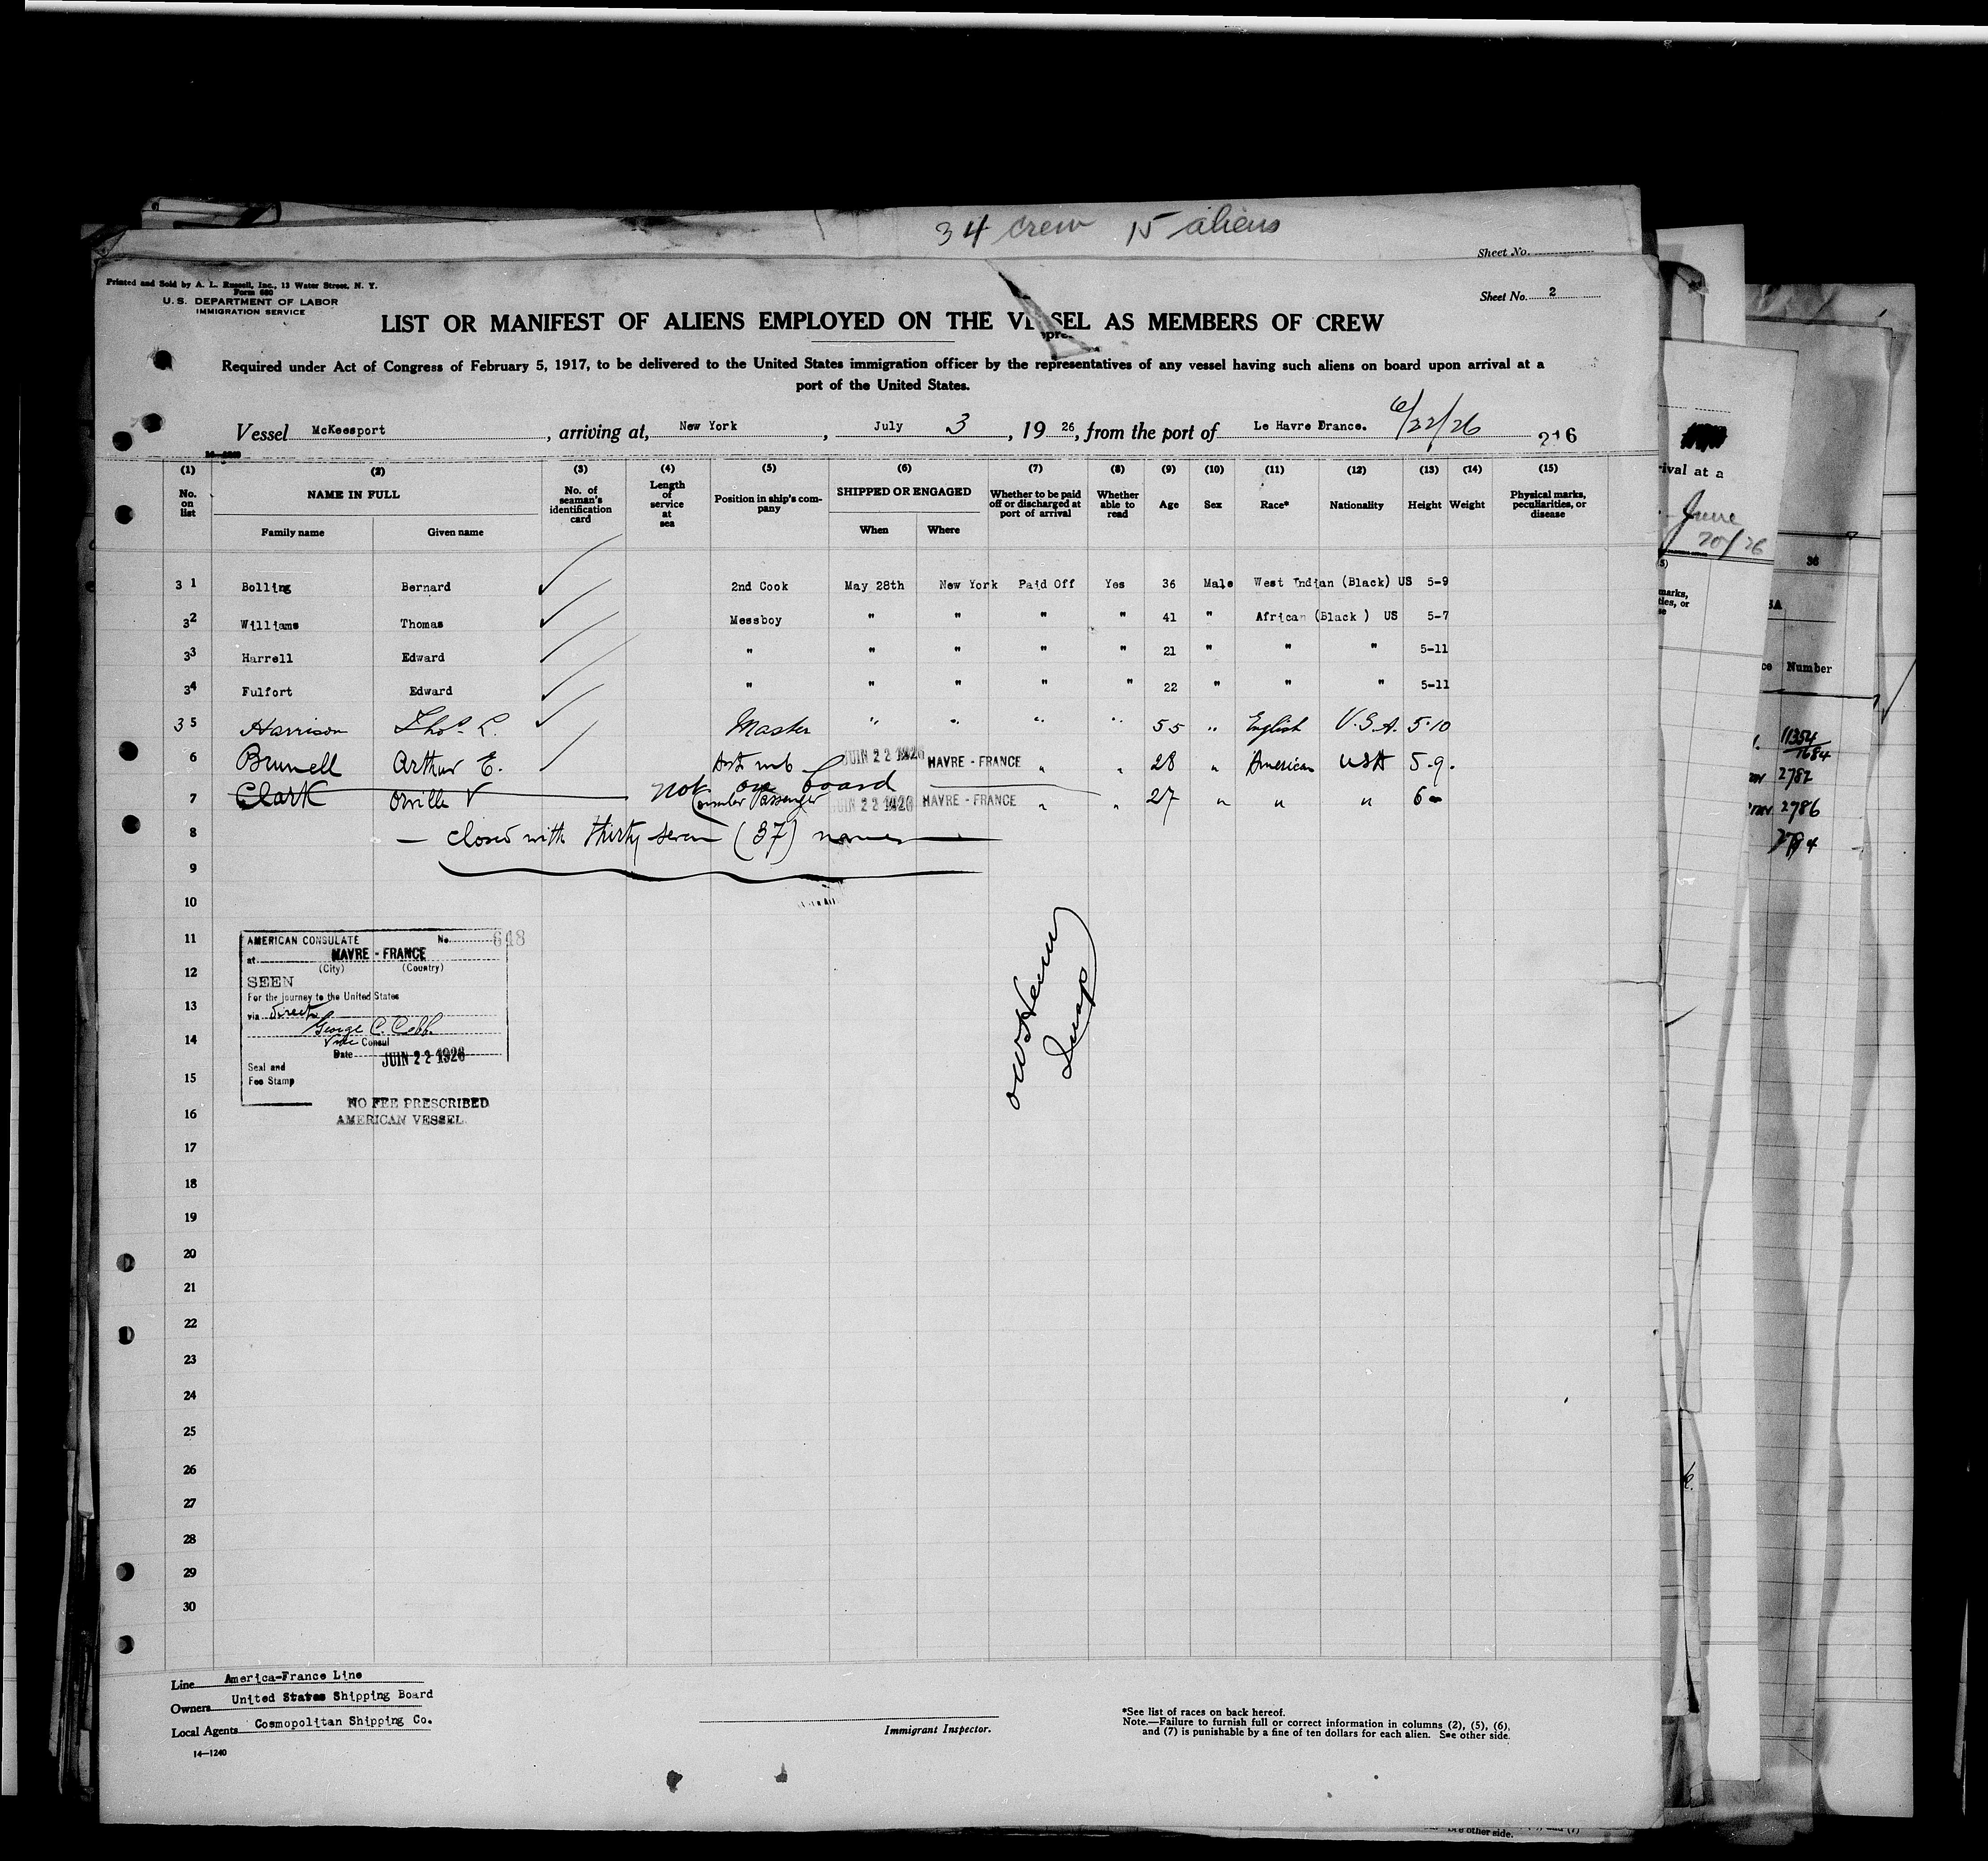 34 crew 15 aliens
Sheet No.
Printed and Sold by A. L. Russell, Inc., 13 Water Street, N. Y.
Form 680
U. S. DEPARTMENT OF LABOR
IMMIGRATION SERVICE
Sheet No. 2
LIST OR MANIFEST OF ALIENS EMPLOYED ON THE VESSEL AS MEMBERS OF CREW
Required under Act of Congress of February 5, 1917, to be delivered to the United States immigration officer by the representatives of any vessel having such aliens on board upon arrival at a
port of the United States.
Vessel McKeesport, arriving at, New York, July 3, 1926, from the port of Le Havre Drance. 6/22/26 216
(1) (2) (3) (4) (5) (6) (7) (8) (9) (10) (11) (12) (13) (14) (15)
No. on list NAME IN FULL No. of seaman's identification card Length of service at sea Position in ship's company SHIPPED OR ENGAGED Whether to be paid off or discharged at port of arrival Whether able to read Age Sex Race* Nationality Height Weight Physical marks, peculiarities, or disease
Family name Given name When Where
31 Bolling Bernard 2nd Cook May 28th New York Paid Off Yes 36 Male West Indian (Black) US 5-9
32 Williams Thomas Messboy " " " " 41 " African (Black ) US 5-7
33 Harrell Edward " " " " " 21 " " " 5-11
34 Fulfort Edward " " " " " 22 " " " 5-11
35 Harrison Thos. L. Master " " " " 55 " English U.S.A. 5-10
6 Brunell Arthur E. JUIN 22 1926 HAVRE - FRANCE " " 28 " American USA 5-9.
not on board
7 Clark Orville V Consular Passenger JUIN 22 1926 HAVRE - FRANCE " " 27 " " " 6-
8 — closed with thirty seven (37) names
9
10
11
12
13
14
15
16
17
18
19
20
21
22
23
24
25
26
27
28
29
30
AMERICAN CONSULATE No. 648
at HAVRE - FRANCE
(City) (Country)
SEEN
For the journey to the United States
via direct
George C. Cobb
Vice Consul
Date JUIN 22 1926
Seal and
Fee Stamp
NO FEE PRESCRIBED
AMERICAN VESSEL
Insp
Line America-France Line
Owners United States Shipping Board
Local Agents Cosmopolitan Shipping Co.
14—1240
Immigrant Inspector.
*See list of races on back hereof.
Note.—Failure to furnish full or correct information in columns (2), (5), (6),
and (7) is punishable by a fine of ten dollars for each alien. See other side.
rival at a
June
20/26
marks,
36
Number
11354
1684
2782
2786
other side.